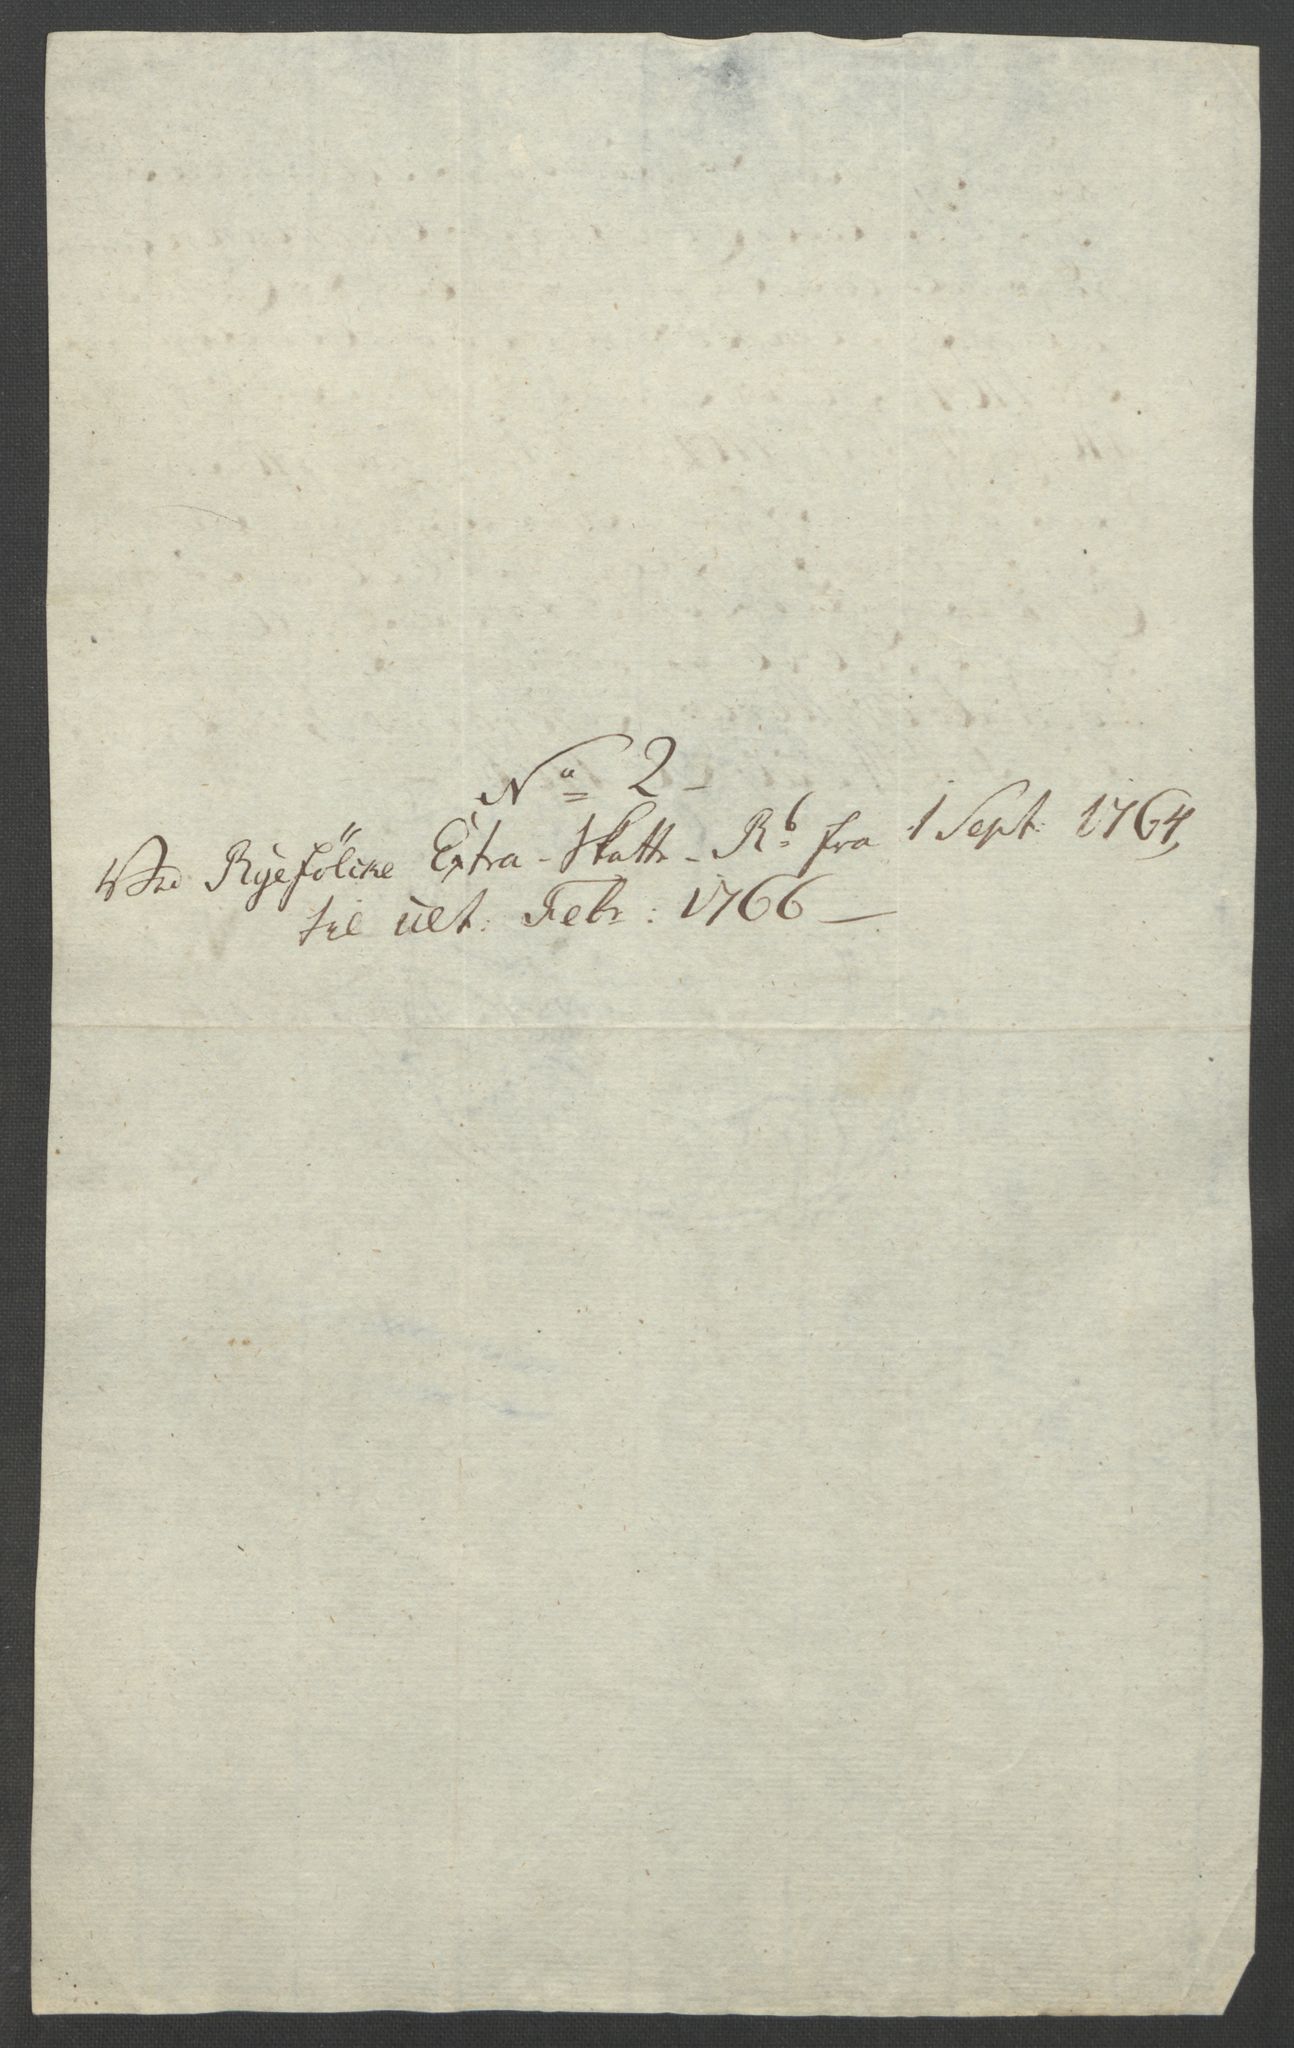 No 2
Ved Ryefölcke Extra-Skatte-Rb fra 1 Sept: 1764,
til ult: Febr: 1766